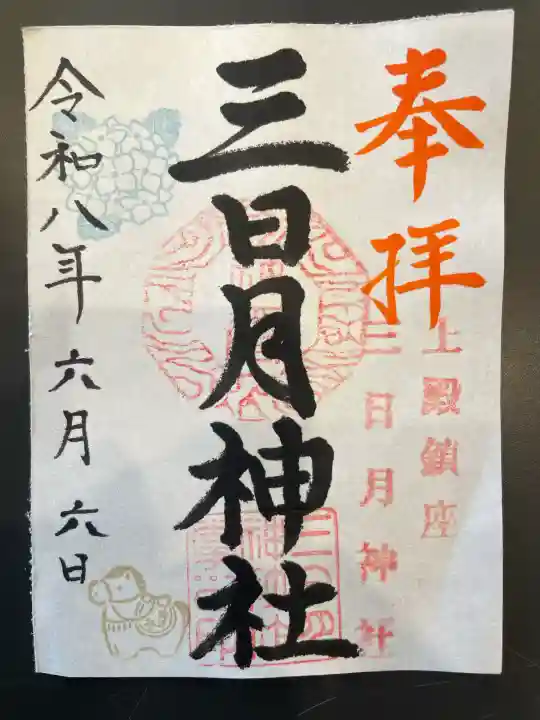 奉拝
上殿鎮座
三日月神社
三日月神社
令和八年六月六日